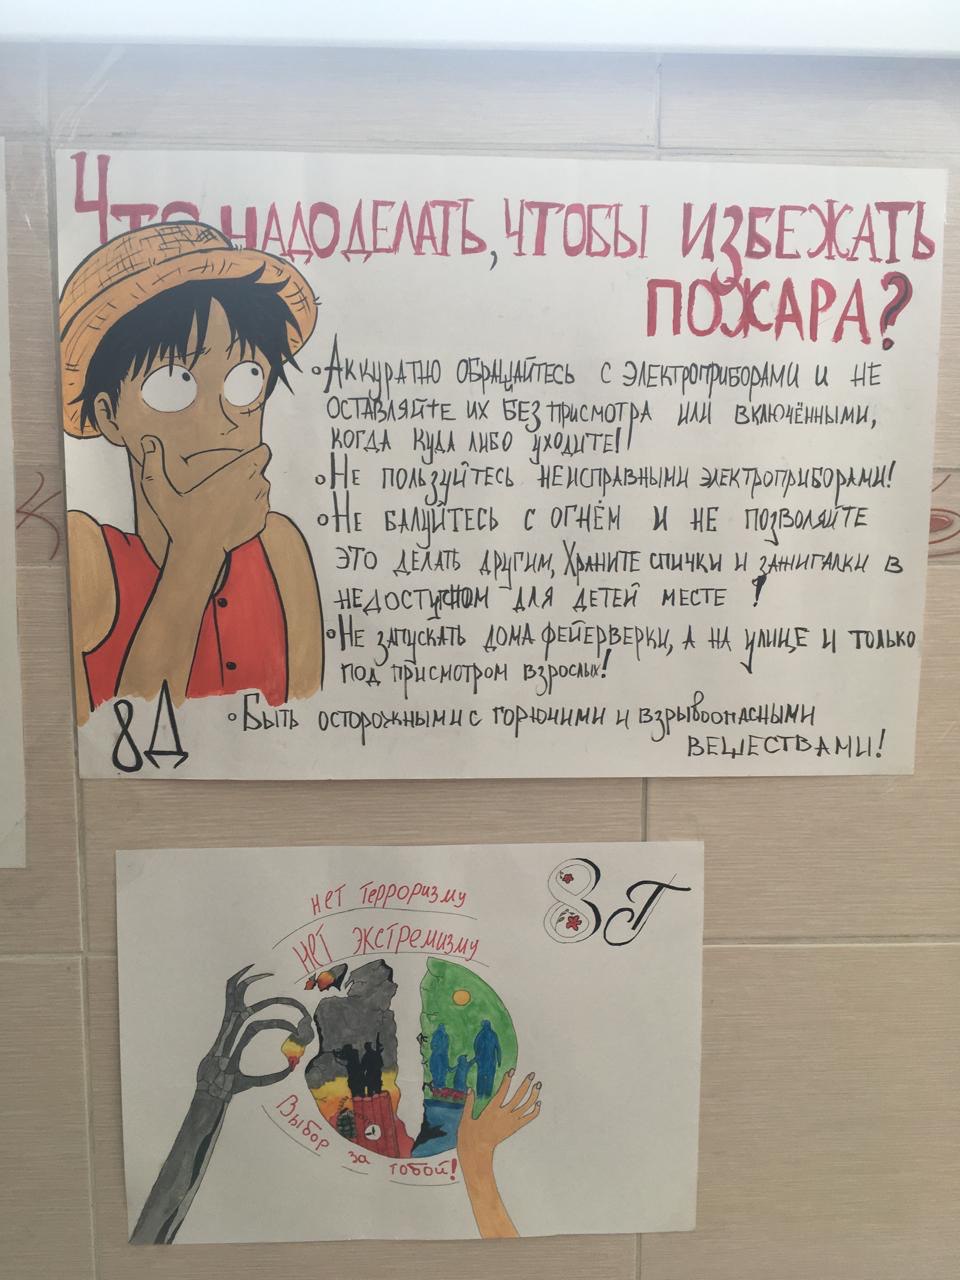 Что надо делать, чтобы избежать
пожара?
Аккуратно обращайтесь с электроприборами и не
оставляйте их без присмотра или включёнными,
когда куда либо уходите!
Не пользуйтесь неисправными электроприборами!
Не балуйтесь с огнём и не позволяйте
это делать другим, Храните спички и зажигалки в
недоступном для детей месте !
Не запускать дома фейерверки, а на улице и только
под присмотром взрослых!
8Д
Быть осторожными с горючими и взрывоопасными
веществами!
8Г
нет терроризму
нет экстремизму
Выбор за тобой!